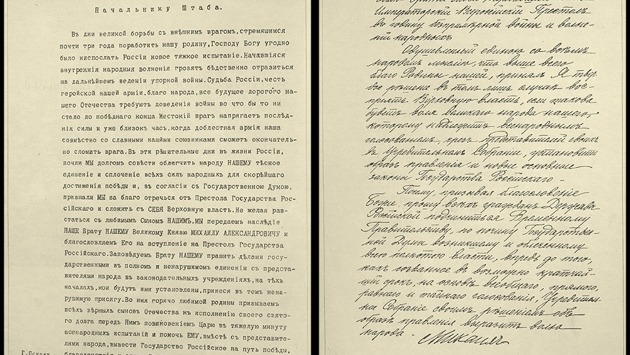 Начальнику Штаба.
В дни великой борьбы с внешним врагом, стремящимся
почти три года поработить нашу родину, Господу Богу угодно
было ниспослать России новое тяжкое испытание. Начавшіяся
внутреннія народныя волненія грозятъ бѣдственно отразиться
на дальнѣйшем веденіи упорной войны. Судьба Россіи, честь
геройской нашей арміи, благо народа, все будущее дорогого нашего
Отечества требуютъ доведенія войны во что бы то ни
стало до побѣднаго конца. Жестокій врагъ напрягаетъ послѣд-
нія силы и уже близокъ часъ, когда доблестная армія наша
совмѣстно со славными нашими союзниками сможетъ окончатель-
но сломить врага. Въ эти рѣшительные дни въ жизни Россіи,
почли МЫ долгомъ совѣсти облегчить народу НАШЕМУ тѣсное
единеніе и сплоченіе всѣхъ силъ народныхъ для скорѣйшаго
достиженія побѣды и, въ согласіи съ Государственною Думою,
признали МЫ за благо отречься отъ Престола Государства Рос-
сійскаго и сложить съ СЕБЯ Верховную власть. Не желая раз-
статься съ любимымъ Сыномъ НАШИМЪ, МЫ передаемъ наслѣдіе
НАШЕ Брату НАШЕМУ Великому Князю МИХАИЛУ АЛЕКСАНДРОВИЧУ и
благословляемъ Его на вступленіе на Престолъ Государства
Россійскаго. Заповѣдуемъ Брату НАШЕМУ править дѣлами го-
сударственными въ полномъ и ненарушимомъ единеніи съ предста-
вителями народа въ законодательныхъ учрежденіяхъ, на тѣхъ
началахъ, кои будутъ ими установлены, принеся въ томъ нена-
рушимую присягу. Во имя горячо любимой родины призываемъ
всѣхъ вѣрныхъ сыновъ Отечества къ исполненію своего свята-
го долга передъ Нимъ, повиновеніемъ Царю въ тяжелую минуту
всенародныхъ испытаній и помочь ЕМУ, вмѣстѣ съ представите-
лями народа, вывести Государство Россійское на путь побѣды,
Императорскій Всероссійскій Престолъ
въ годину безпримѣрной войны и волне-
ній народныхъ.
Одушевленный единою со всѣмъ
народомъ мыслію, что выше всего
благо Родины нашей, принялъ Я твер-
дое рѣшеніе въ томъ лишь случаѣ вос-
пріять Верховную власть, если такова
будетъ воля великаго народа нашего,
которому надлежитъ всенароднымъ
голосованіемъ, чрезъ представителей своихъ
въ Учредительномъ Собраніи, установить
образъ правленія и новые основные
законы Государства Россійскаго.
Посему, призывая благословеніе
Божіе, прошу всѣхъ гражданъ Державы
Россійской подчиниться Временному
Правительству, по почину Государствен-
ной Думы возникшему и облеченному
всею полнотою власти, впредь до того,
какъ созванное въ возможно кратчай-
шій срокъ, на основѣ всеобщаго, прямого,
равнаго и тайнаго голосованія, Учредитель-
ное Собраніе своимъ рѣшеніемъ объ
образѣ правленія выразитъ волю
народа.
Михаилъ